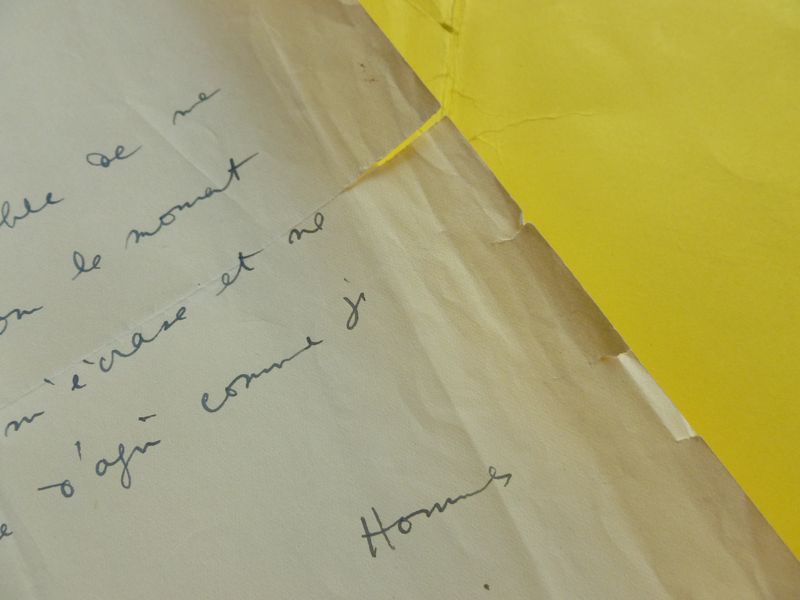 de me
le moment
m'écrase et ne
d'agir comme je
Hommes